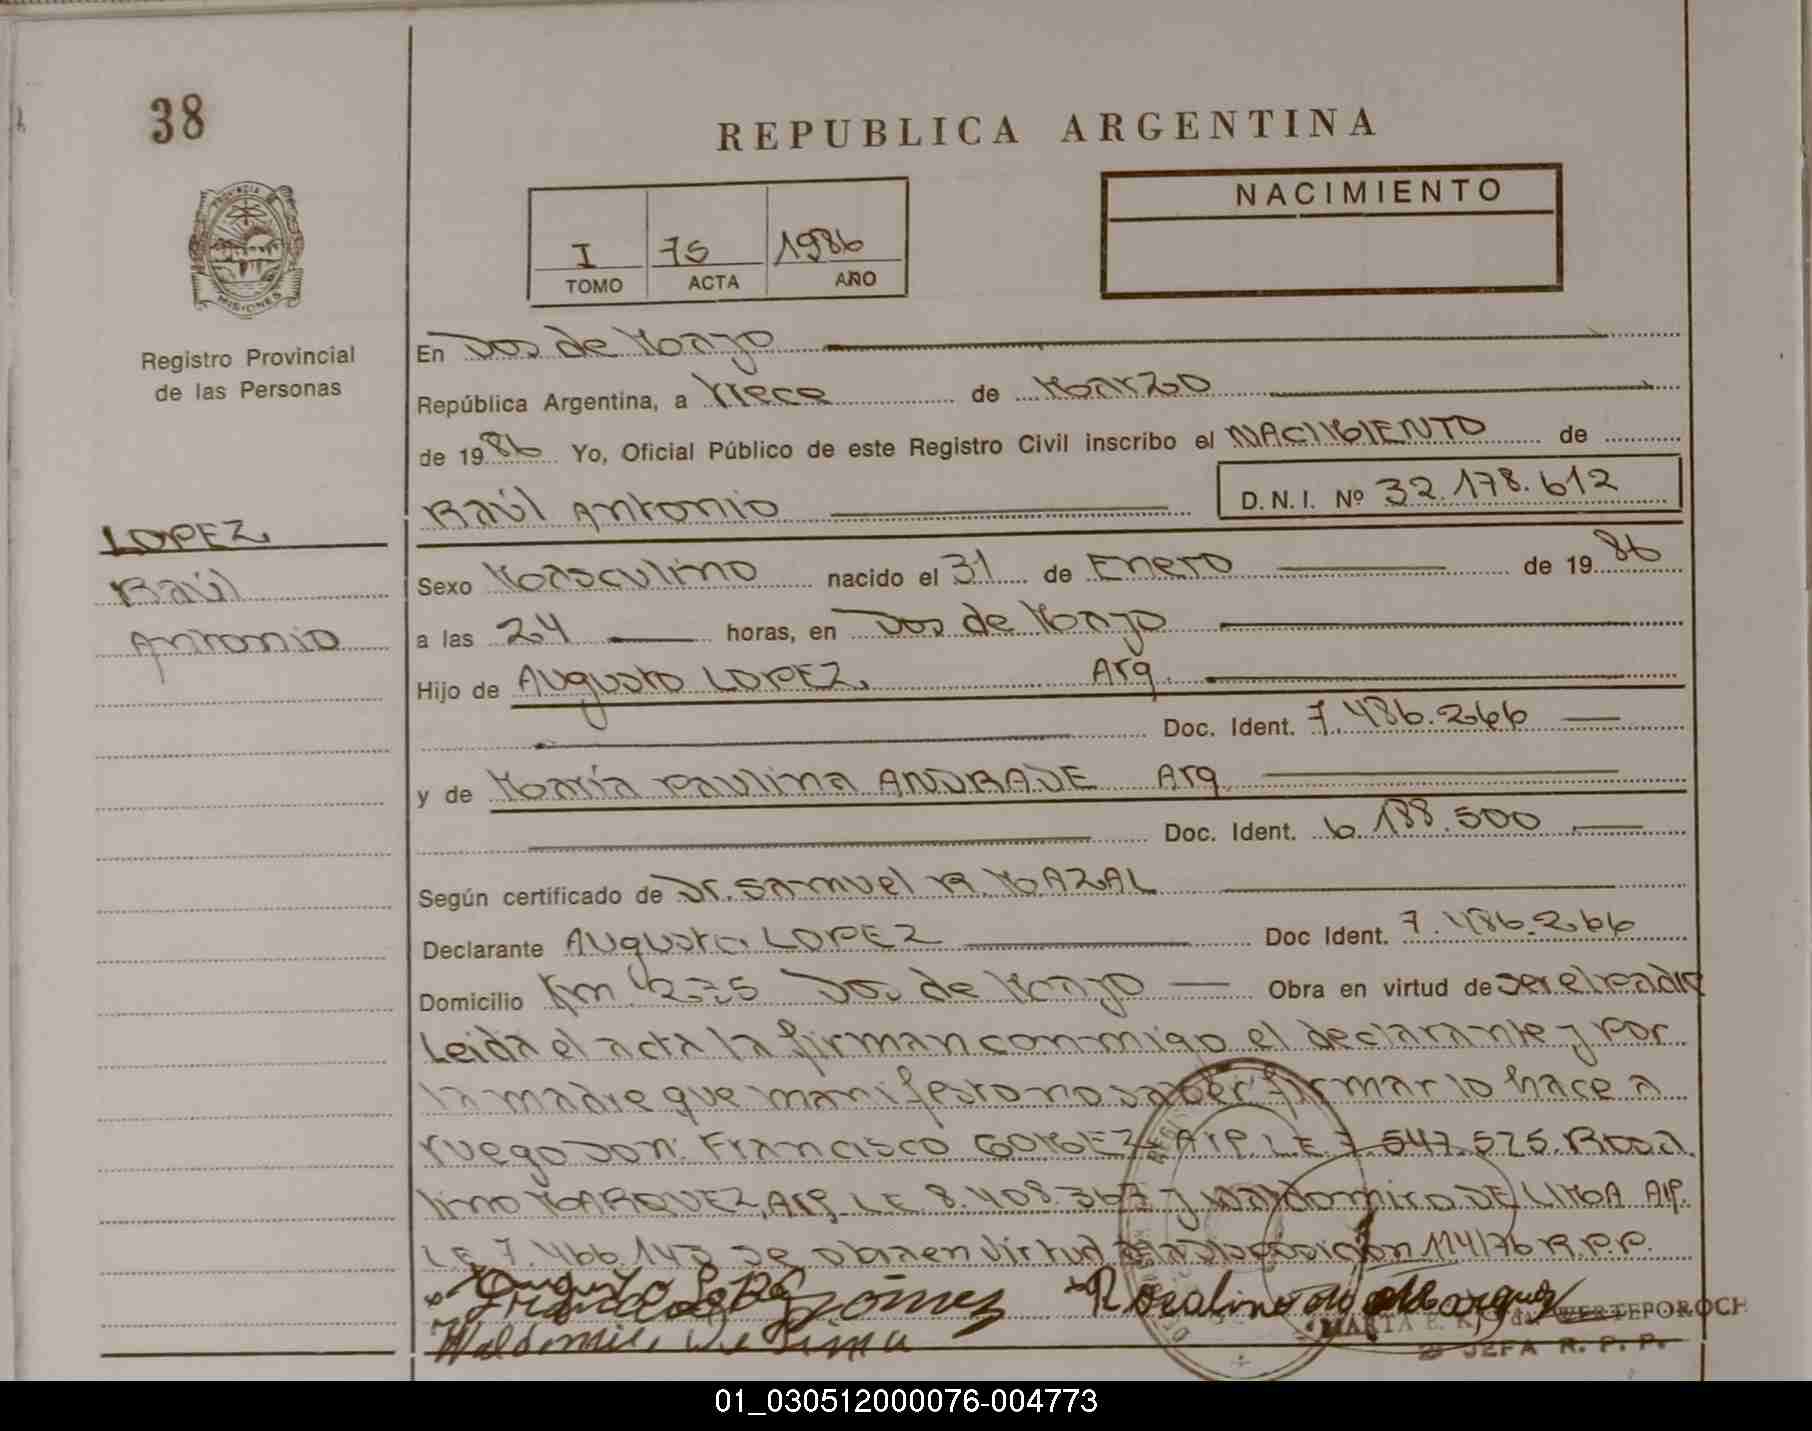 38
REPUBLICA ARGENTINA
NACIMIENTO
I 75 1986
TOMO ACTA AÑO
PROVINCIA
MISIONES
Registro Provincial
de las Personas
En Dos de Mayo
República Argentina, a Trece de Marzo
de 1986 Yo, Oficial Público de este Registro Civil inscribo el NACIMIENTO de
Raúl Antonio D.N.I. Nº 32.178.612
LOPEZ,
Raúl
Antonio
Sexo Masculino nacido el 31 de Enero de 1986
a las 24 horas, en Dos de Mayo
Hijo de Augusto LOPEZ, Arg.
Doc. Ident. 7.486.266
y de María Paulina ANDRADE Arg.
Doc. Ident. 6.188.500
Según certificado de Dr. Samuel R. MAZAL
Declarante Augusto LOPEZ Doc Ident. 7.486.266
Domicilio Km. 235 Dos de Mayo Obra en virtud de ser el padre
Leida el acta la firman conmigo el declarante y por
la madre que manifesto no saber firmar lo hace a
ruego Don: Francisco GOMEZ Arg. L.E. 7.547.525. Rosa
lino MARQUEZ, Arg. L.E 8.408.367 y Waldomiro DE LIMA Arg.
L.E 7.466.143 se obra en virtud Disposicion 114/76 R.P.P.
Augusto Lopez
Francisco Gómez Rosalino Marquez
Waldomiro De Lima
MARTA E. WERTEPOROCH
JEFA R. P. P.
01_030512000076-004773